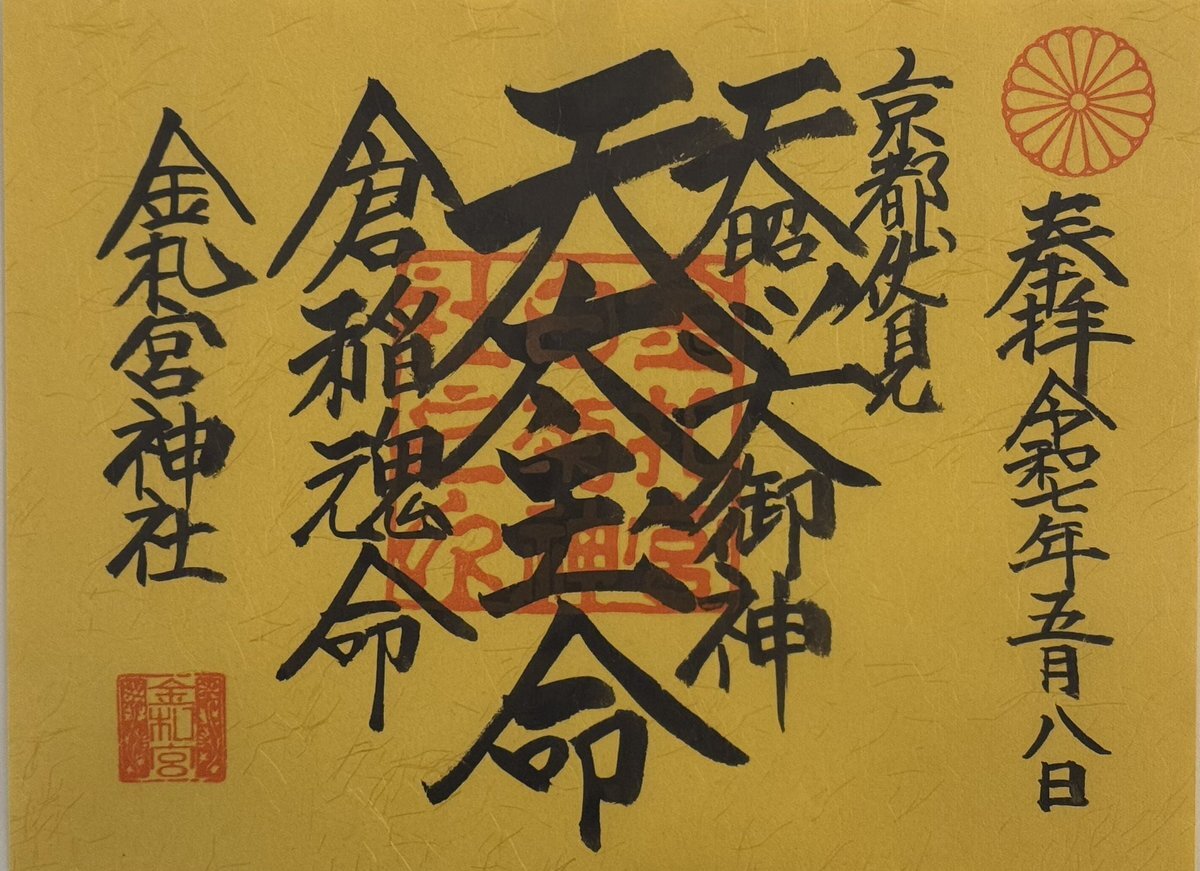 奉拝 令和七年五月八日
京都伏見
天照大御神
天太玉命
倉稲魂命
金札宮神社
金札宮